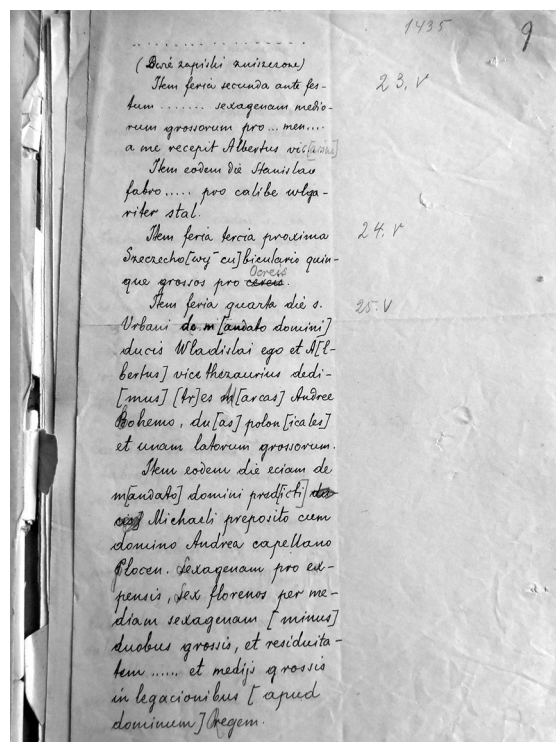 1435
9
. . . . . . . . . . . . . . . . . .
(Dwie zapiski zniszczone)
Item feria secunda ante fes-
23. V
tum ....... sexagenam medio-
rum grossorum pro ... men....
a me recepit Albertus vic[
Item eodem die Stanislao
fabro ..... pro calibe wlga-
riter stal.
Item feria tercia proxima
24. V
Szczecho[wy cu]biculario quin-
que grossos pro cereis Ocreis.
Item feria quarta die s.
25. V
Urbani de m[andato domini]
ducis Wladislai ego et A[l-
bertus] vice thezaurius dedi-
[mus] [tr]es m[arcas] Andree
Bohemo, du[as] polon[icales]
et unam latorum grossorum.
Item eodem die eciam de
m[andato] domini pred[icti] du
cis] Michaeli preposito cum
domino Andrea capellano
Plocen. Sexagenam pro ex-
pensis, Sex florenos per me-
diam sexagenam [minus]
duobus grossis, et residuita-
tem ...... et medijs grossis
in legacionibus [apud
dominum] Regem.